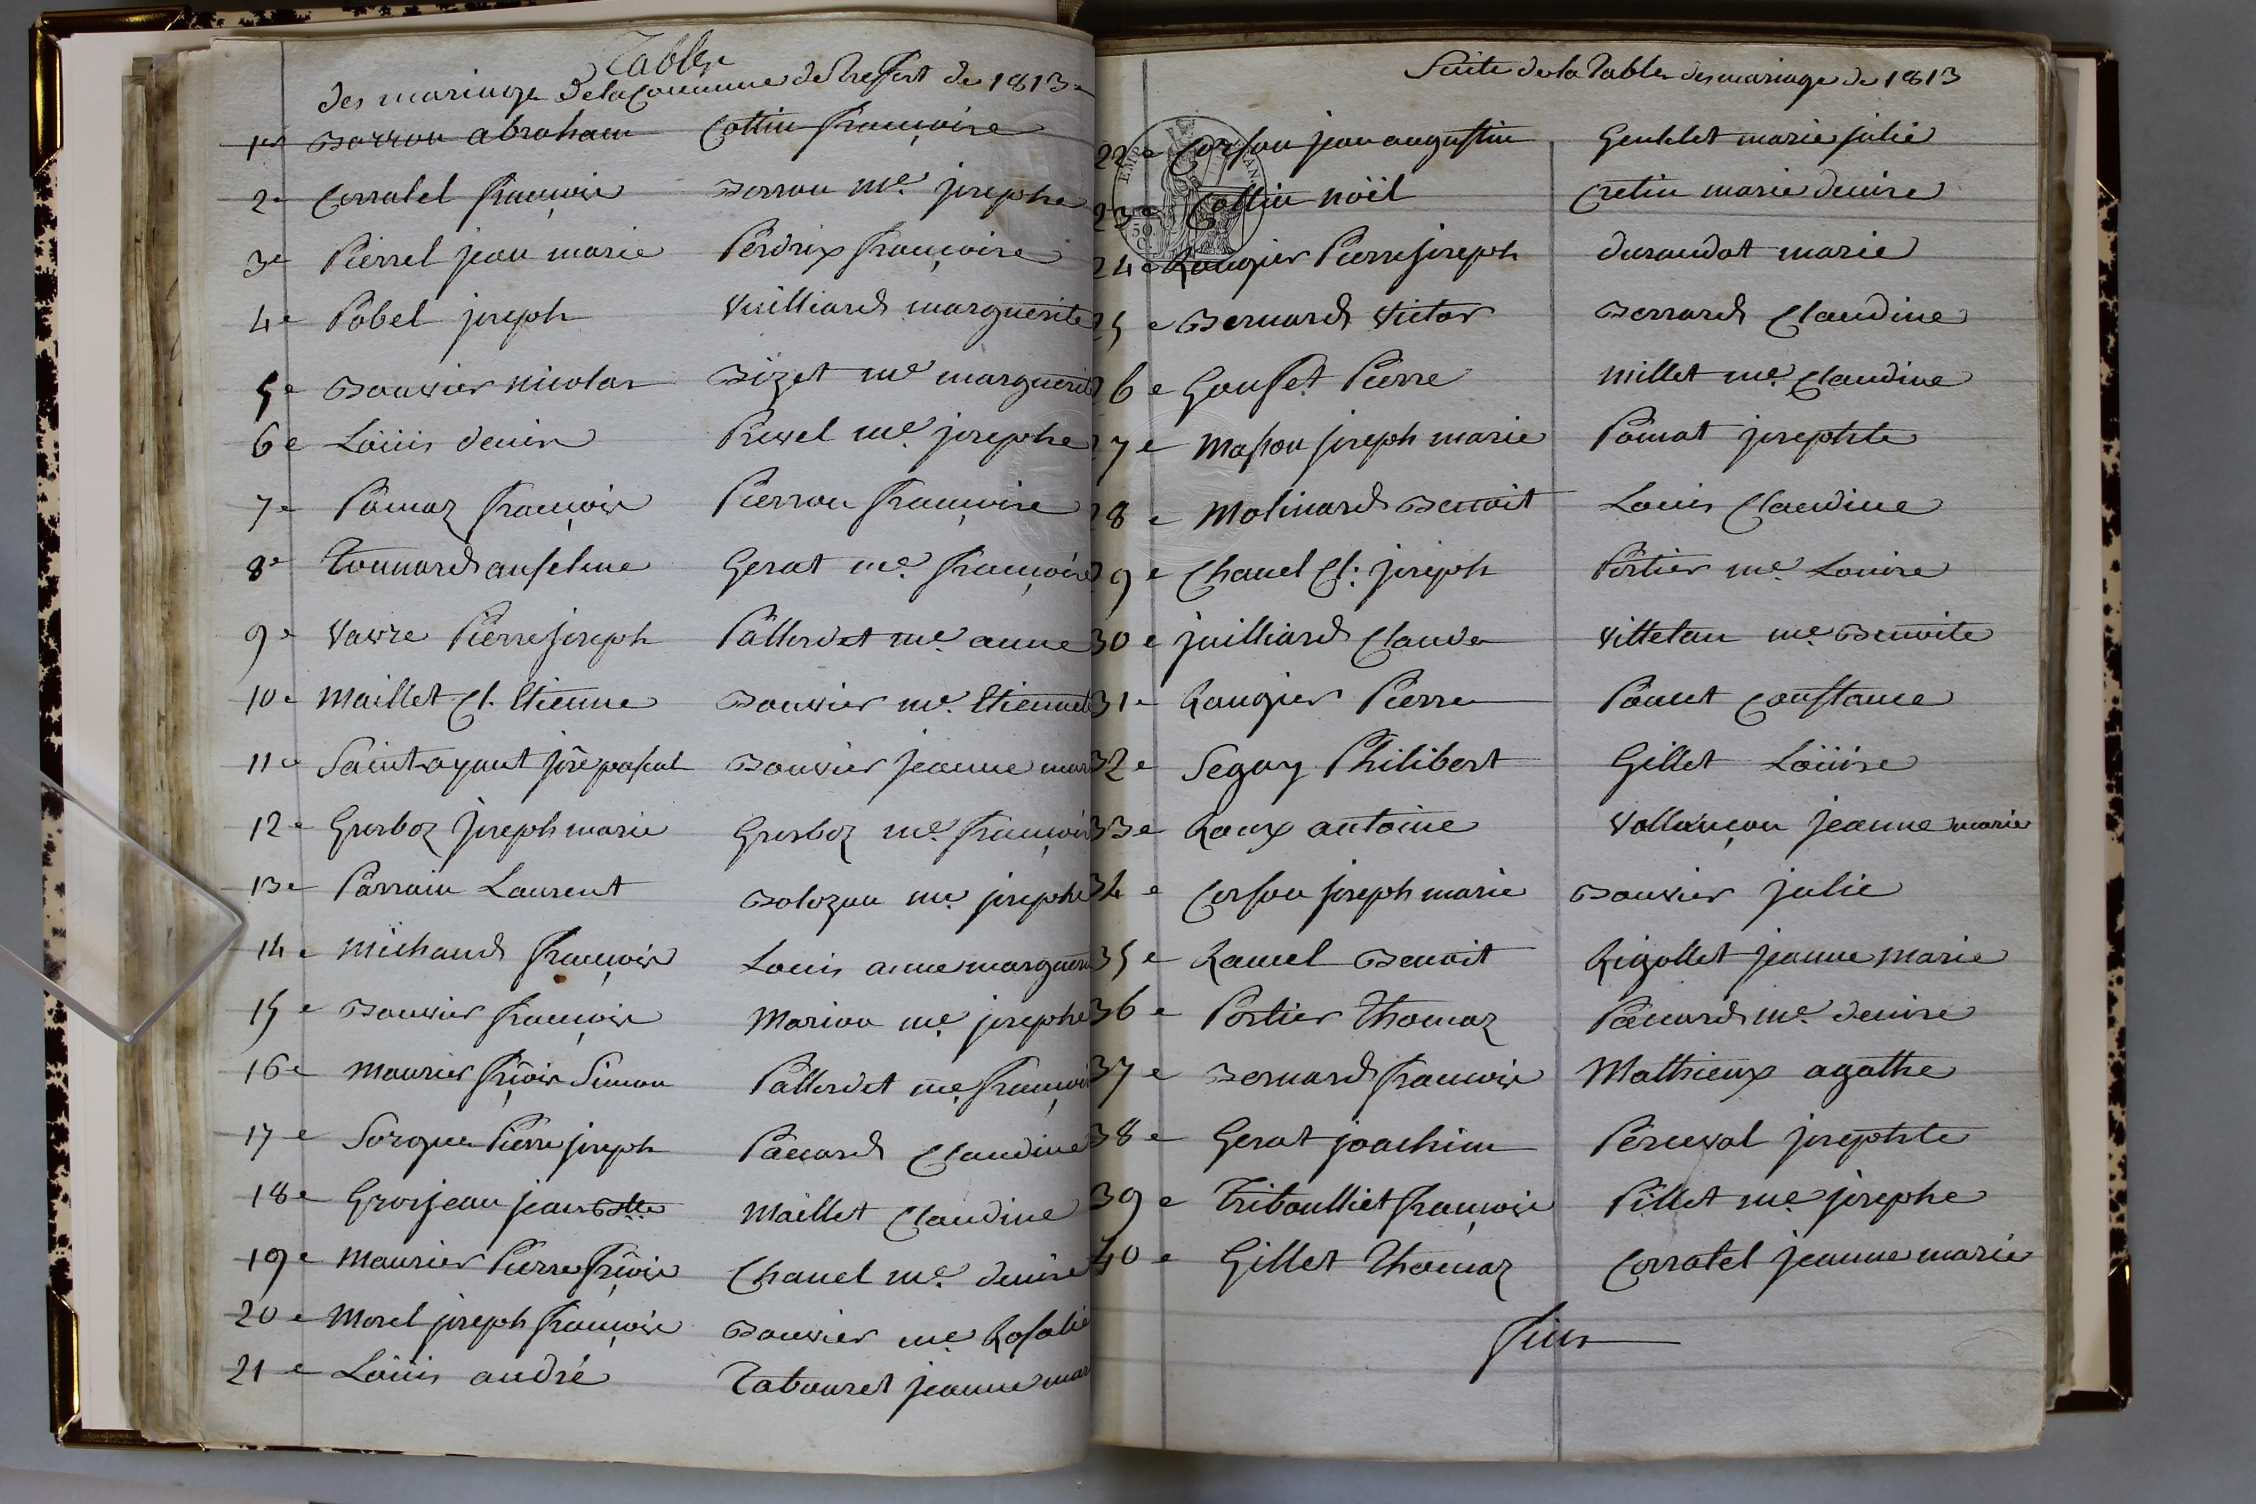 Table
des mariage de la Commune de Treffort de 1813
1er Berrou abraham Cottin françoise
2e Corratel françois Berrou me. josephe
3e Pierrel jean marie Perdrix françoise
4e Pobel joseph Vuilliard marguerite
5e Bouvier nicolas Bizet me marguerite
6e Loüis denis Prevel me. josephe
7e Pâmaz françois Pierrou françoise
8e Tonnard anselme Gerat me. françoise
9e Vavre Pierre joseph Pallordet me. anne
10e Maillet Cl. Etienne Bouvier me. Etiennet
11e Saint-ayant jôe pascal Bouvier jeanne mar
12e Grosboz Joseph marie Grosboz me. françoise
13e Parrain Laurent Bolozon me. josephe
14e Michaud françois Louis anne marguerite
15e Bouvier françois Marion me. josephe
16e Maurier frçois Simon Pallordet me. françoise
17e Sorgue Pierre joseph Pacard Claudine
18e Grosjean jean Btte Maillet Claudine
19e Maurier Pierre frçois Chanel me. denise
20e Morel joseph françois Bouvier me. Rosalie
21e Loüis andré Tabouret jeanne mar
Suite de la Table des mariage de 1813
22e Corson jean augustin Gentelet marie julie
23e Cottin noël Cretin marie denise
24e Rougier Pierre joseph durandot marie
25e Bernard Victor Berrard Claudine
26e Gousset Pierre Millet me. Claudine
27e Masson joseph marie Pomat josephte
28e Molinard Benoit Louis Claudine
29e Chanel Cl. joseph Portier me. Louise
30e juilliard Claude Villetan me. Benoite
31e Rougier Pierre Ponut Constance
32e Segay Philibert Gillet Loüise
33e Roux antoine Vallançon jeanne marie
34e Corson joseph marie Bouvier julie
35e Ramel Benoit Rigollet jeanne marie
36e Portier Thomaz Pacard me. denise
37e Bernard françois Mathieux agathe
38e Gerat joachim Perceval josephte
39e Triboulliet françois Pillet me. josephe
40e Gillet Thomaz Corratel jeanne marie
fin